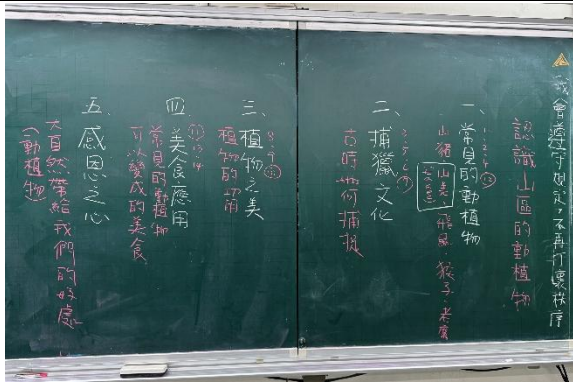 我會遵守規定,不再打壞秩序
認識山區的動植物
一、常見的動植物
1.2.4
山豬、山羌、飛鼠、猴子、老鷹
二、捕獵文化
3.5.6.7
古時如何捕捉
三、植物之美
8.9.10
植物的功用
四、美食應用
11.12.13.14
常見的動植物
可以變成的美食
五、感恩之心
大自然帶給我們的好處
(動植物)